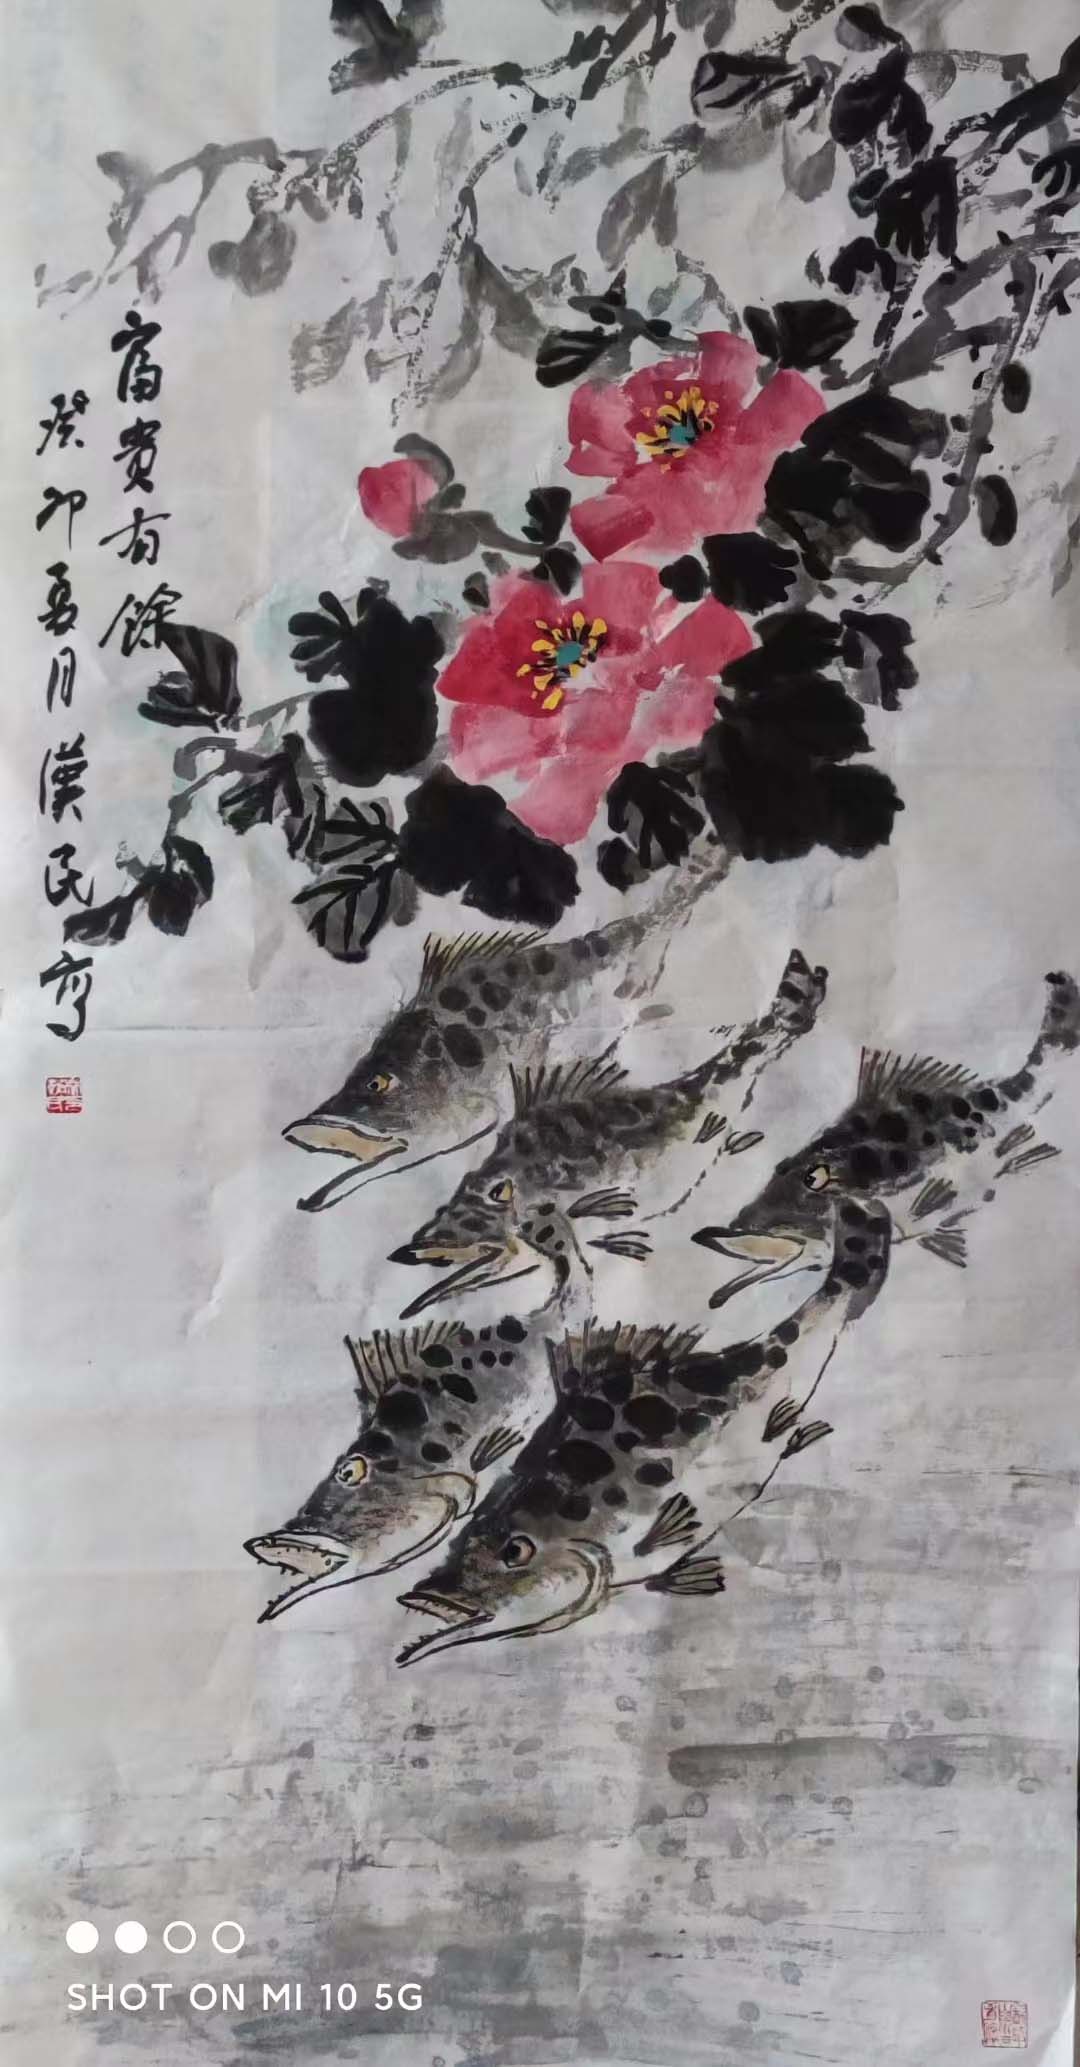 富贵有餘
癸卯夏月漢民寫
SHOT ON MI 10 5G